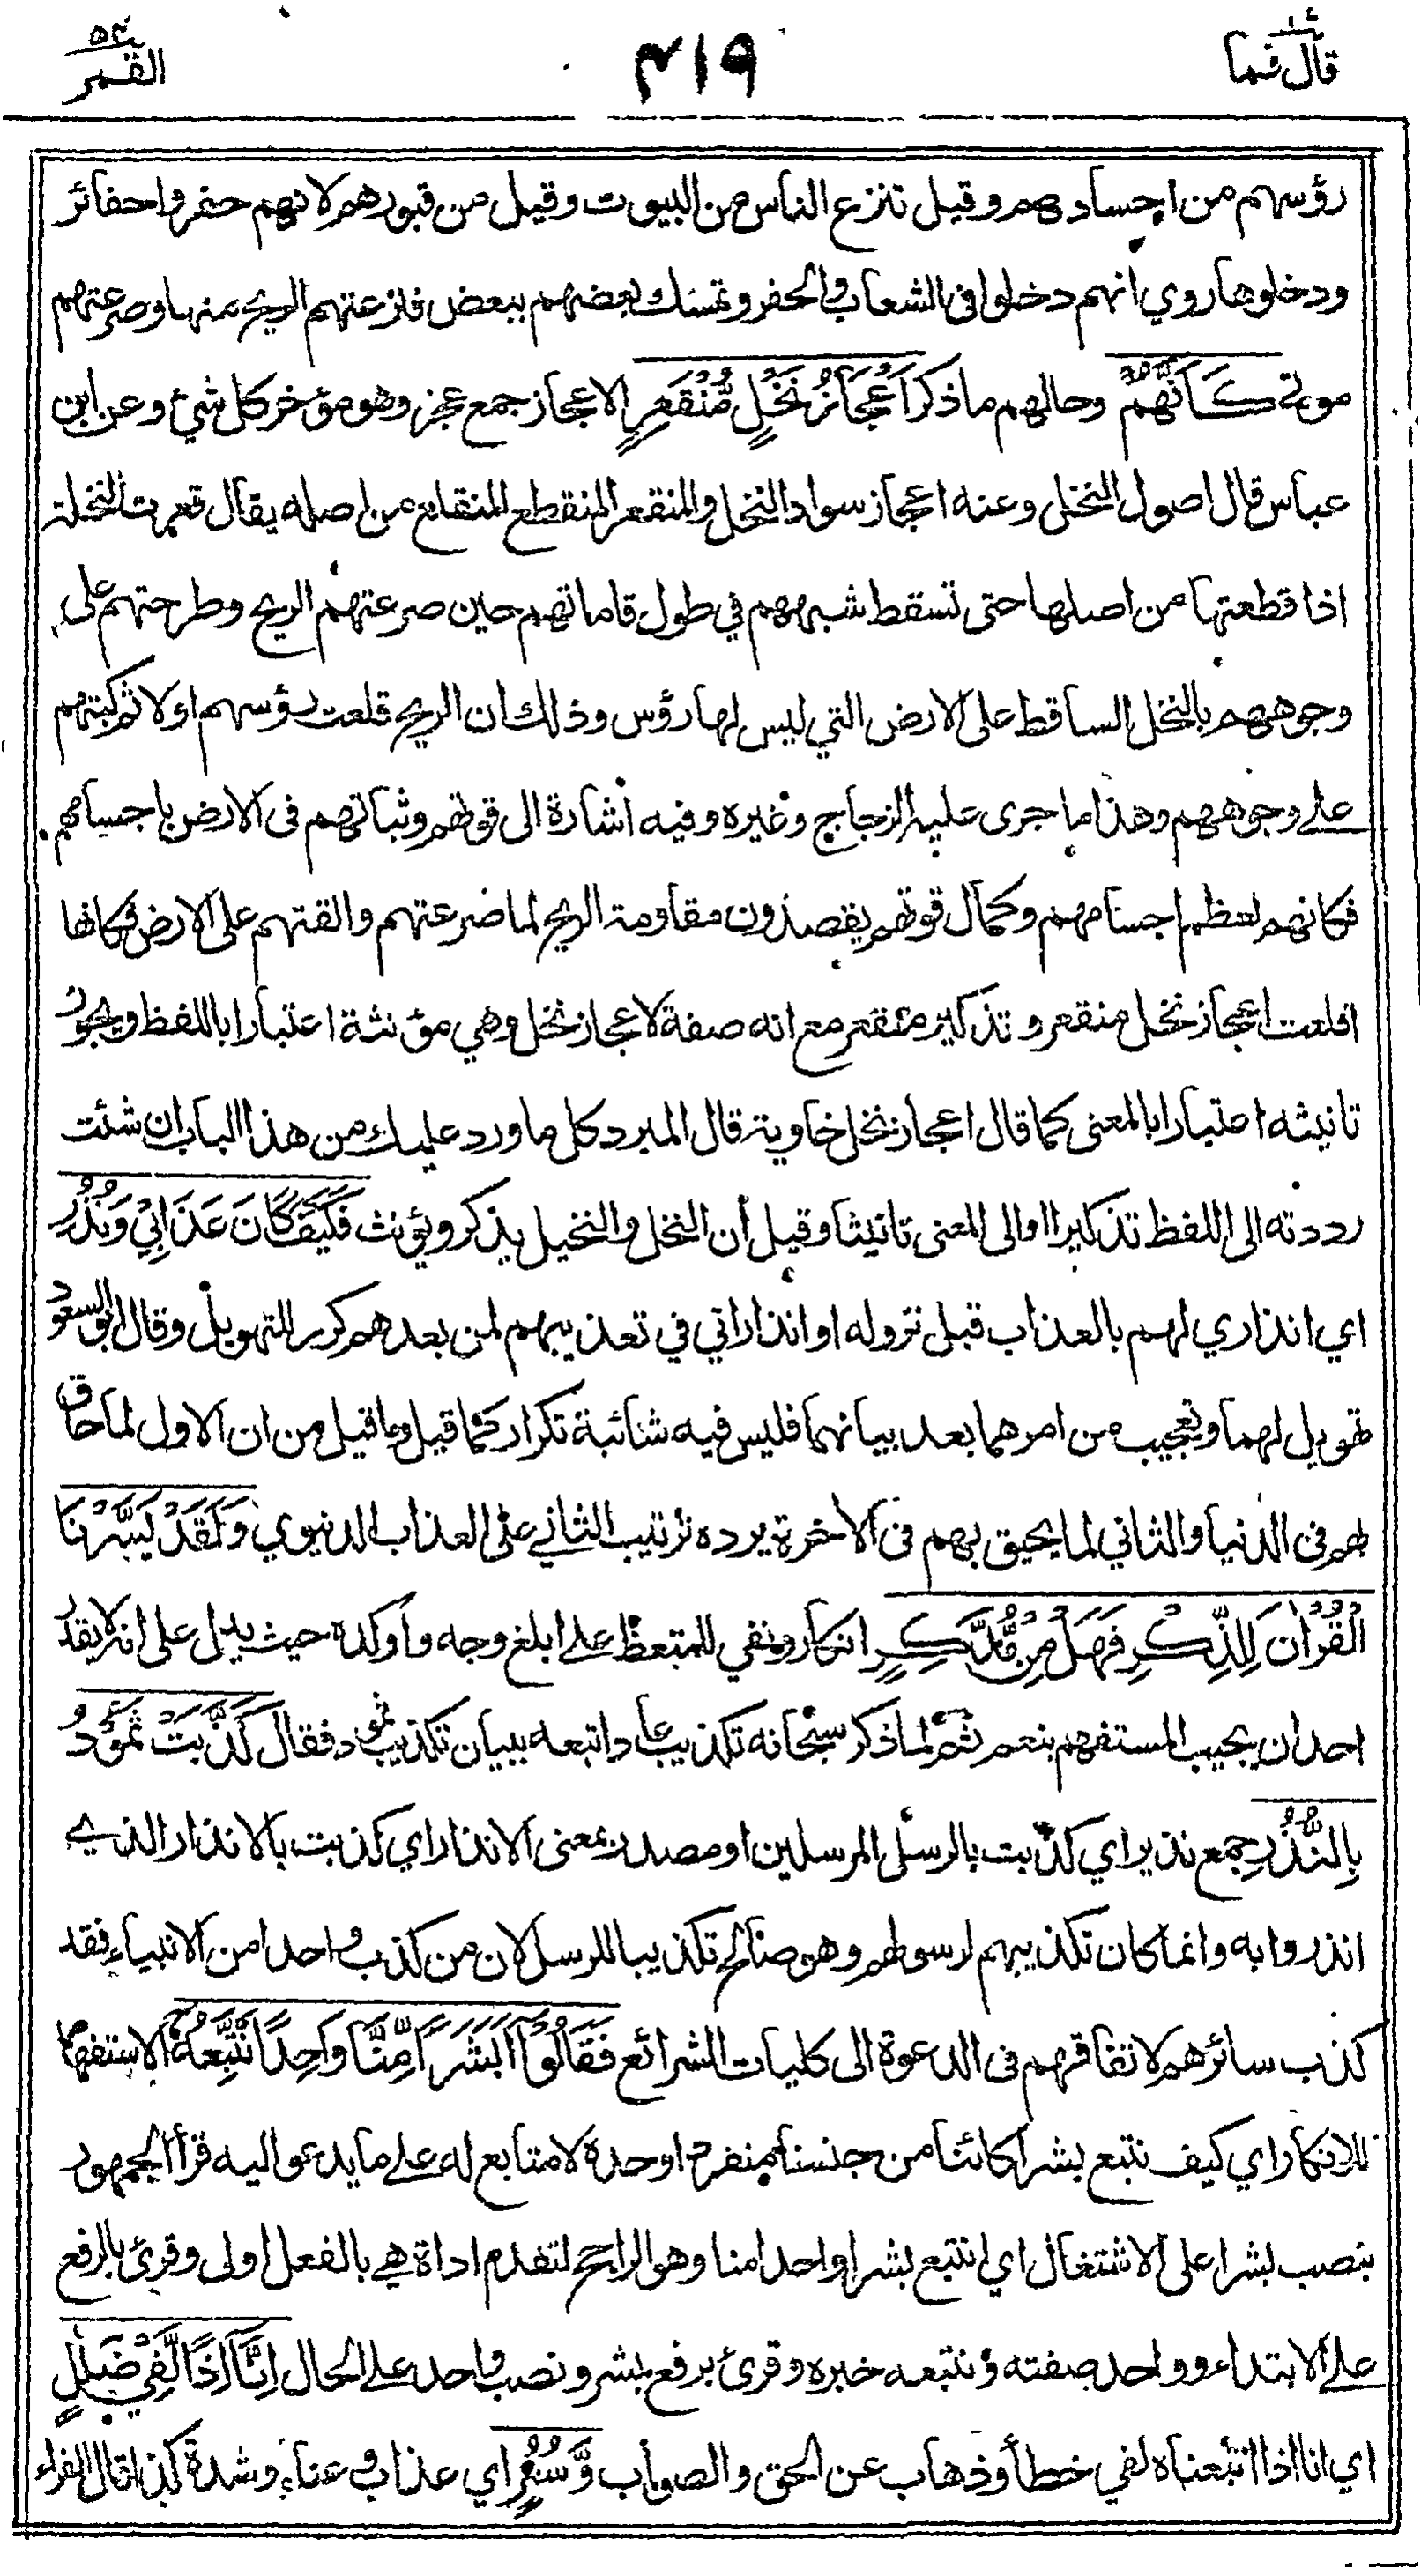 قال فما ٢٧
٤١٩
القمر ٥٤
رؤسهم من اجسادهم وقيل تنزع الناس من البيوت وقيل من قبورهم لانهم حفروا حفائر
ودخلوها روي انهم دخلوا في الشعاب والحفر وتمسك بعضهم ببعض فنزعتهم الريح منها وصرعتهم
موتى كَأَنَّهُمْ وحالهم ما ذكر أَعْجَازُ نَخْلٍ مُّنْقَعِرٍ الاعجاز جمع عجز وهو مؤخر كل شيئ وعن ابن
عباس قال اصول النخل وعنه اعجاز سواد النخل والمنقعر المنقطع المنقلع من اصله يقال قعرت النخلة
اذا قطعتها من اصلها حتى تسقط شبههم في طول قاماتهم حين صرعتهم الريح وطرحتهم على
وجوههم بالنخل الساقط على الارض التي ليس لها رؤس وذلك ان الريح قلعت رؤسهم اولا ثم كبتهم
على وجوههم وهذا ما جرى عليه الزجاج وغيره وفيه اشارة الى قوتهم وثباتهم فى الارض باجسامهم
فكانهم لعظم اجسامهم وكمال قوتهم يقصدون مقاومة الريح لما ضرعتهم والقتهم على الارض فكانها
اقلعت اعجاز نخل منقعر وتذكير منقعر مع انه صفة لاعجاز نخل وهي مؤنثة اعتبارا باللفظ ويجوز
تانيثه اعتبارا بالمعنى كما قال اعجاز نخل خاوية قال المبرد كل ما ورد عليك من هذا الباب ان شئت
رددته الى اللفظ تذكيرا او الى المعنى تانيثا وقيل أن النخل والنخيل يذكر ويؤنث فَكَيْفَ كَانَ عَذَابِيْ وَنُذُرِ
اي انذاري لهم بالعذاب قبل نزوله او انذاراتي في تعذيبهم لمن بعدهم كرر للتهويل وقال ابو السعود
تهويل لهما وتعجيب من امرهما بعد بيانهما فليس فيه شائبة تكرار كما قيل وما قيل من ان الاول لما حاق
بهم فى الدنيا والثاني لما يحيق بهم فى الاخرة يرده ترتيب الثاني على العذاب الدنيوي وَلَقَدْ يَسَّرْنَا
الْقُرْاٰنَ لِلذِّكْرِ فَهَلْ مِنْ مُّدَّكِرٍ انكار ونفي للمتعظ على ابلغ وجه واوكده حيث يدل على انه لا يقدر
احد ان يجيب المستفهم بنعم ثم لما ذكر سبحانه تكذيب عاد اتبعه ببيان تكذيب ثمود فقال كَذَّبَتْ ثَمُوْدُ
بِالنُّذُرِ جمع نذير اي كذبت بالرسل المرسلين او مصدر بمعنى الانذار اي كذبت بالانذار الذي
انذروا به وانما كان تكذيبهم لرسولهم وهو صالح تكذيبا للرسل لان من كذب واحدا من الانبياء فقد
كذب سائرهم لاتفاقهم فى الدعوة الى كليات الشرائع فَقَالُوْا اَبَشَرًا مِّنَّا وَاحِدًا نَّتَّبِعُهُ الاستفهام
للانكار اي كيف نتبع بشرا كائنا من جنسنا منفردا وحده لا متابع له على ما يدعو اليه قرأ الجمهور
بنصب بشرا على الاشتغال اي انتبع بشرا واحدا منا وهو الراجح لتقدم اداة هي بالفعل اولى وقرئ بالرفع
على الابتداء وواحد صفته ونتبعه خبره وقرئ برفع بشر ونصب واحد على الحال اِنَّا اِذًا لَّفِيْ ضَلٰلٍ
اي انا اذا اتبعناه لفي خطأ وذهاب عن الحق والصواب وَّسُعُرٍ اي عذاب وعناء وشدة كذا قال الفراء